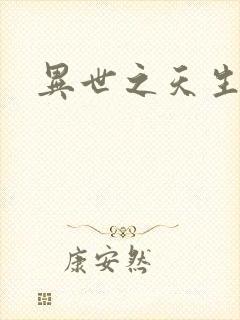 異世之天生
康安然